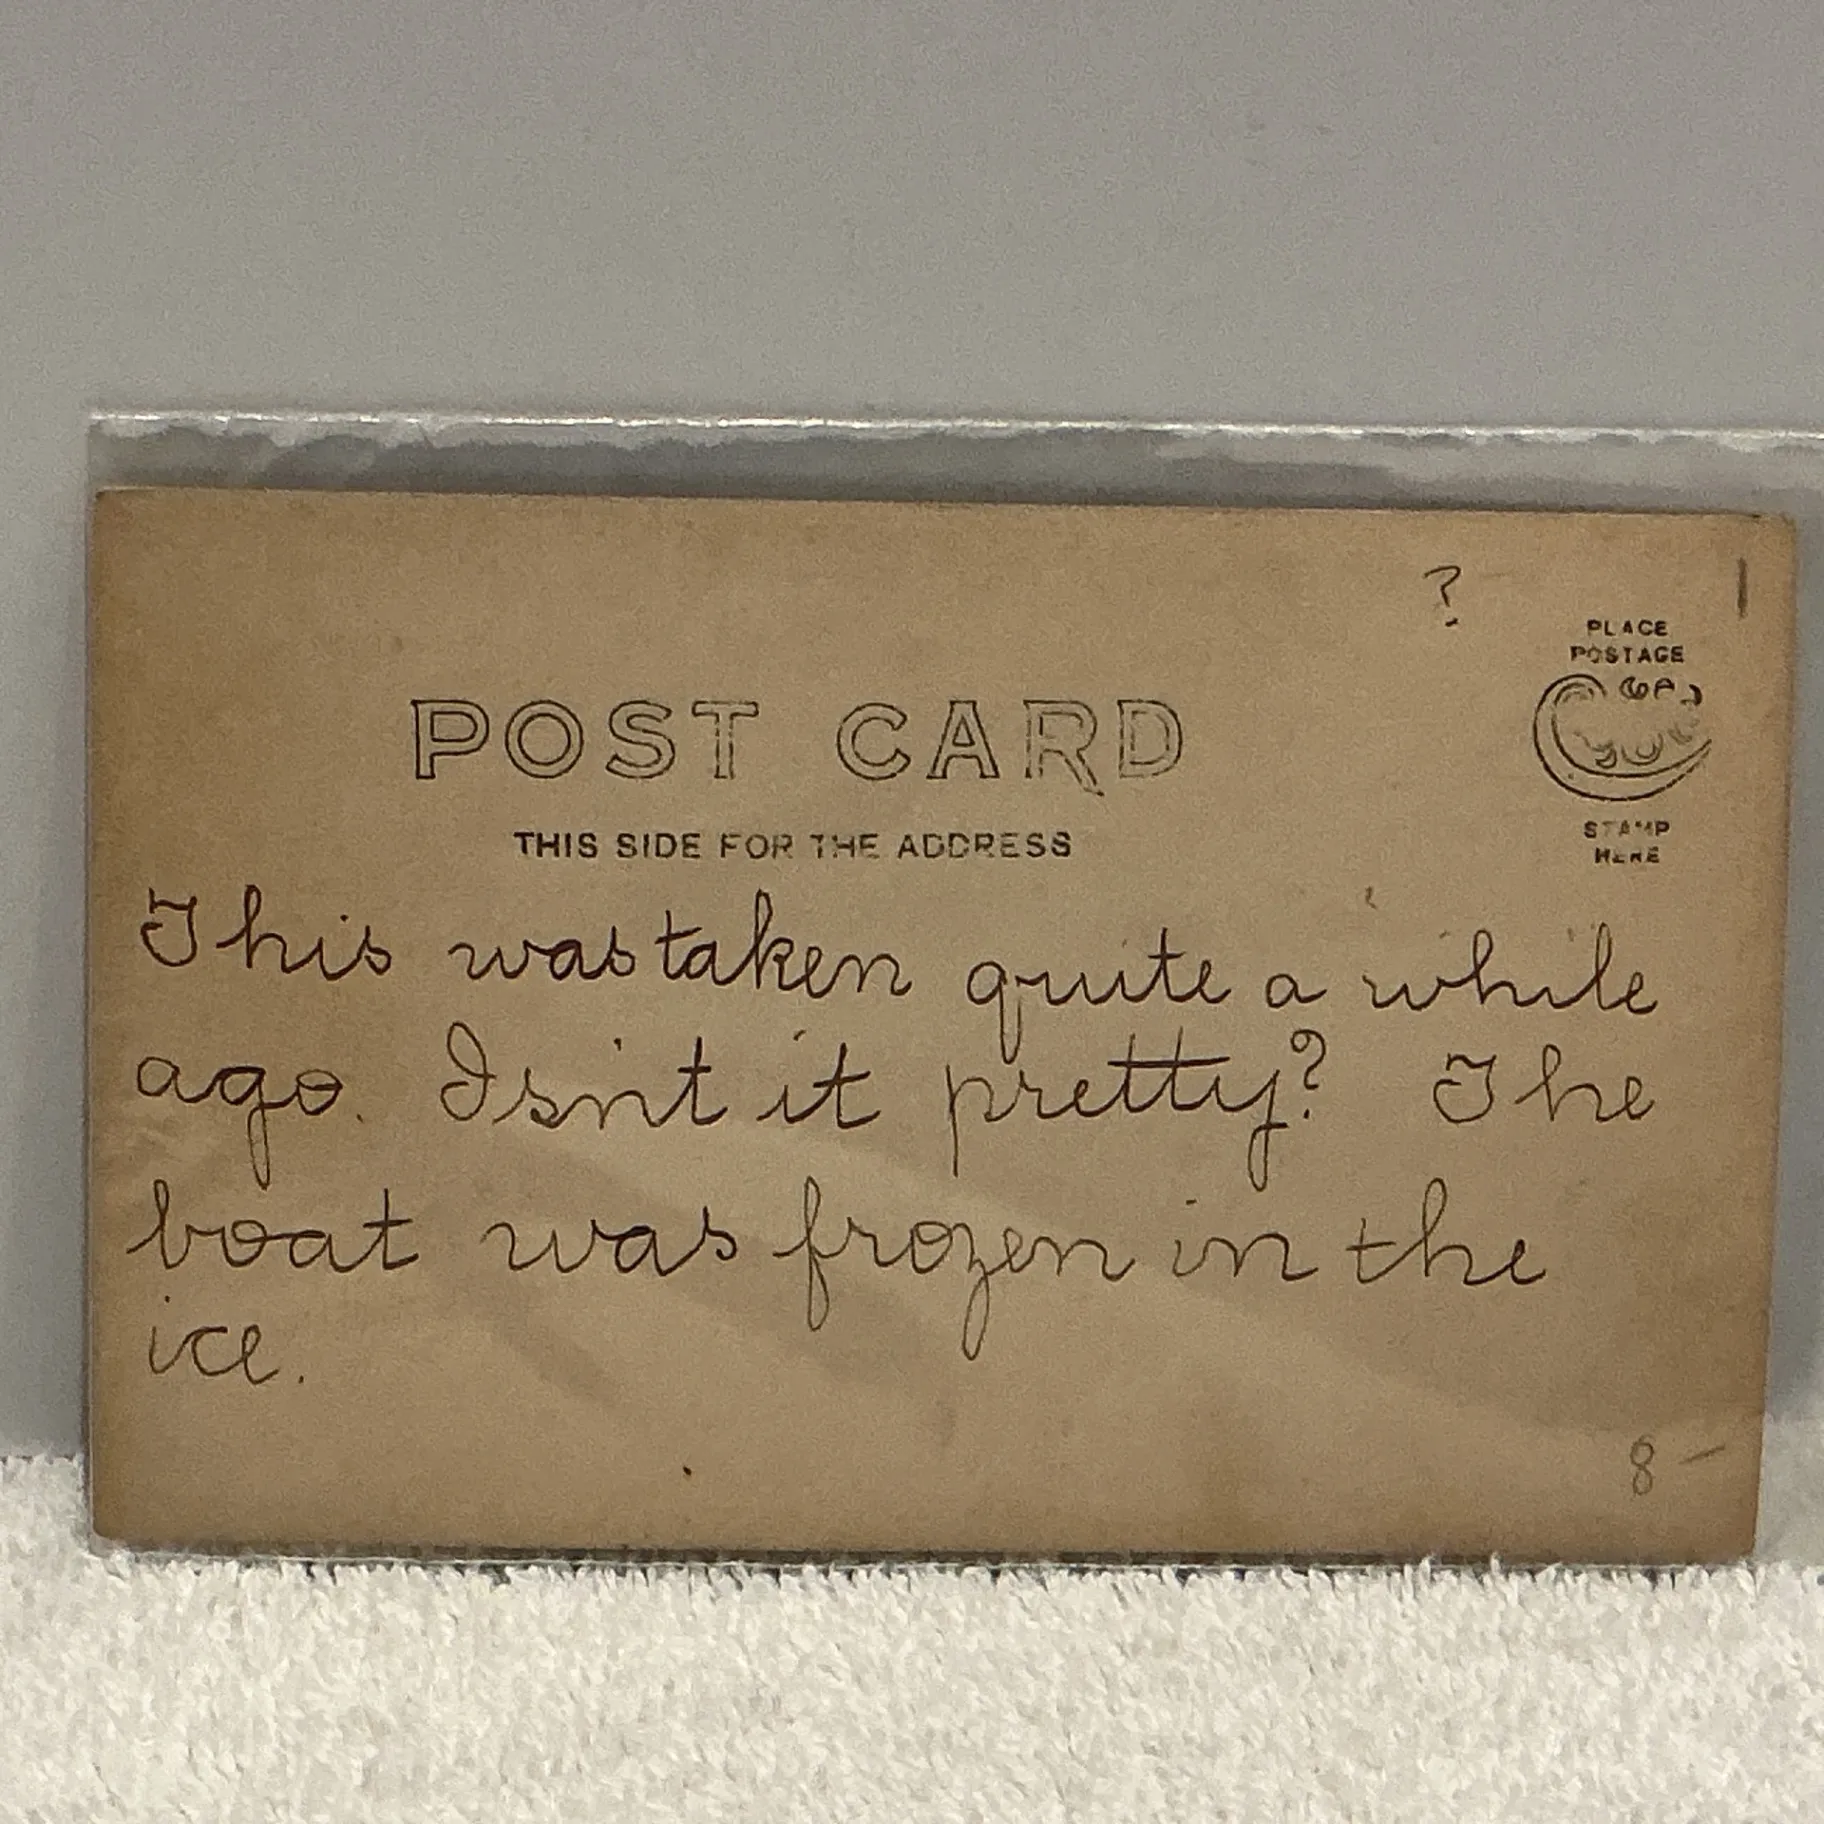 ?
PLACE
POSTAGE
POST CARD
STAMP
HERE
THIS SIDE FOR THE ADDRESS
This was taken quite a while
ago. Isn't it pretty? The
boat was frozen in the
ice.
8 -